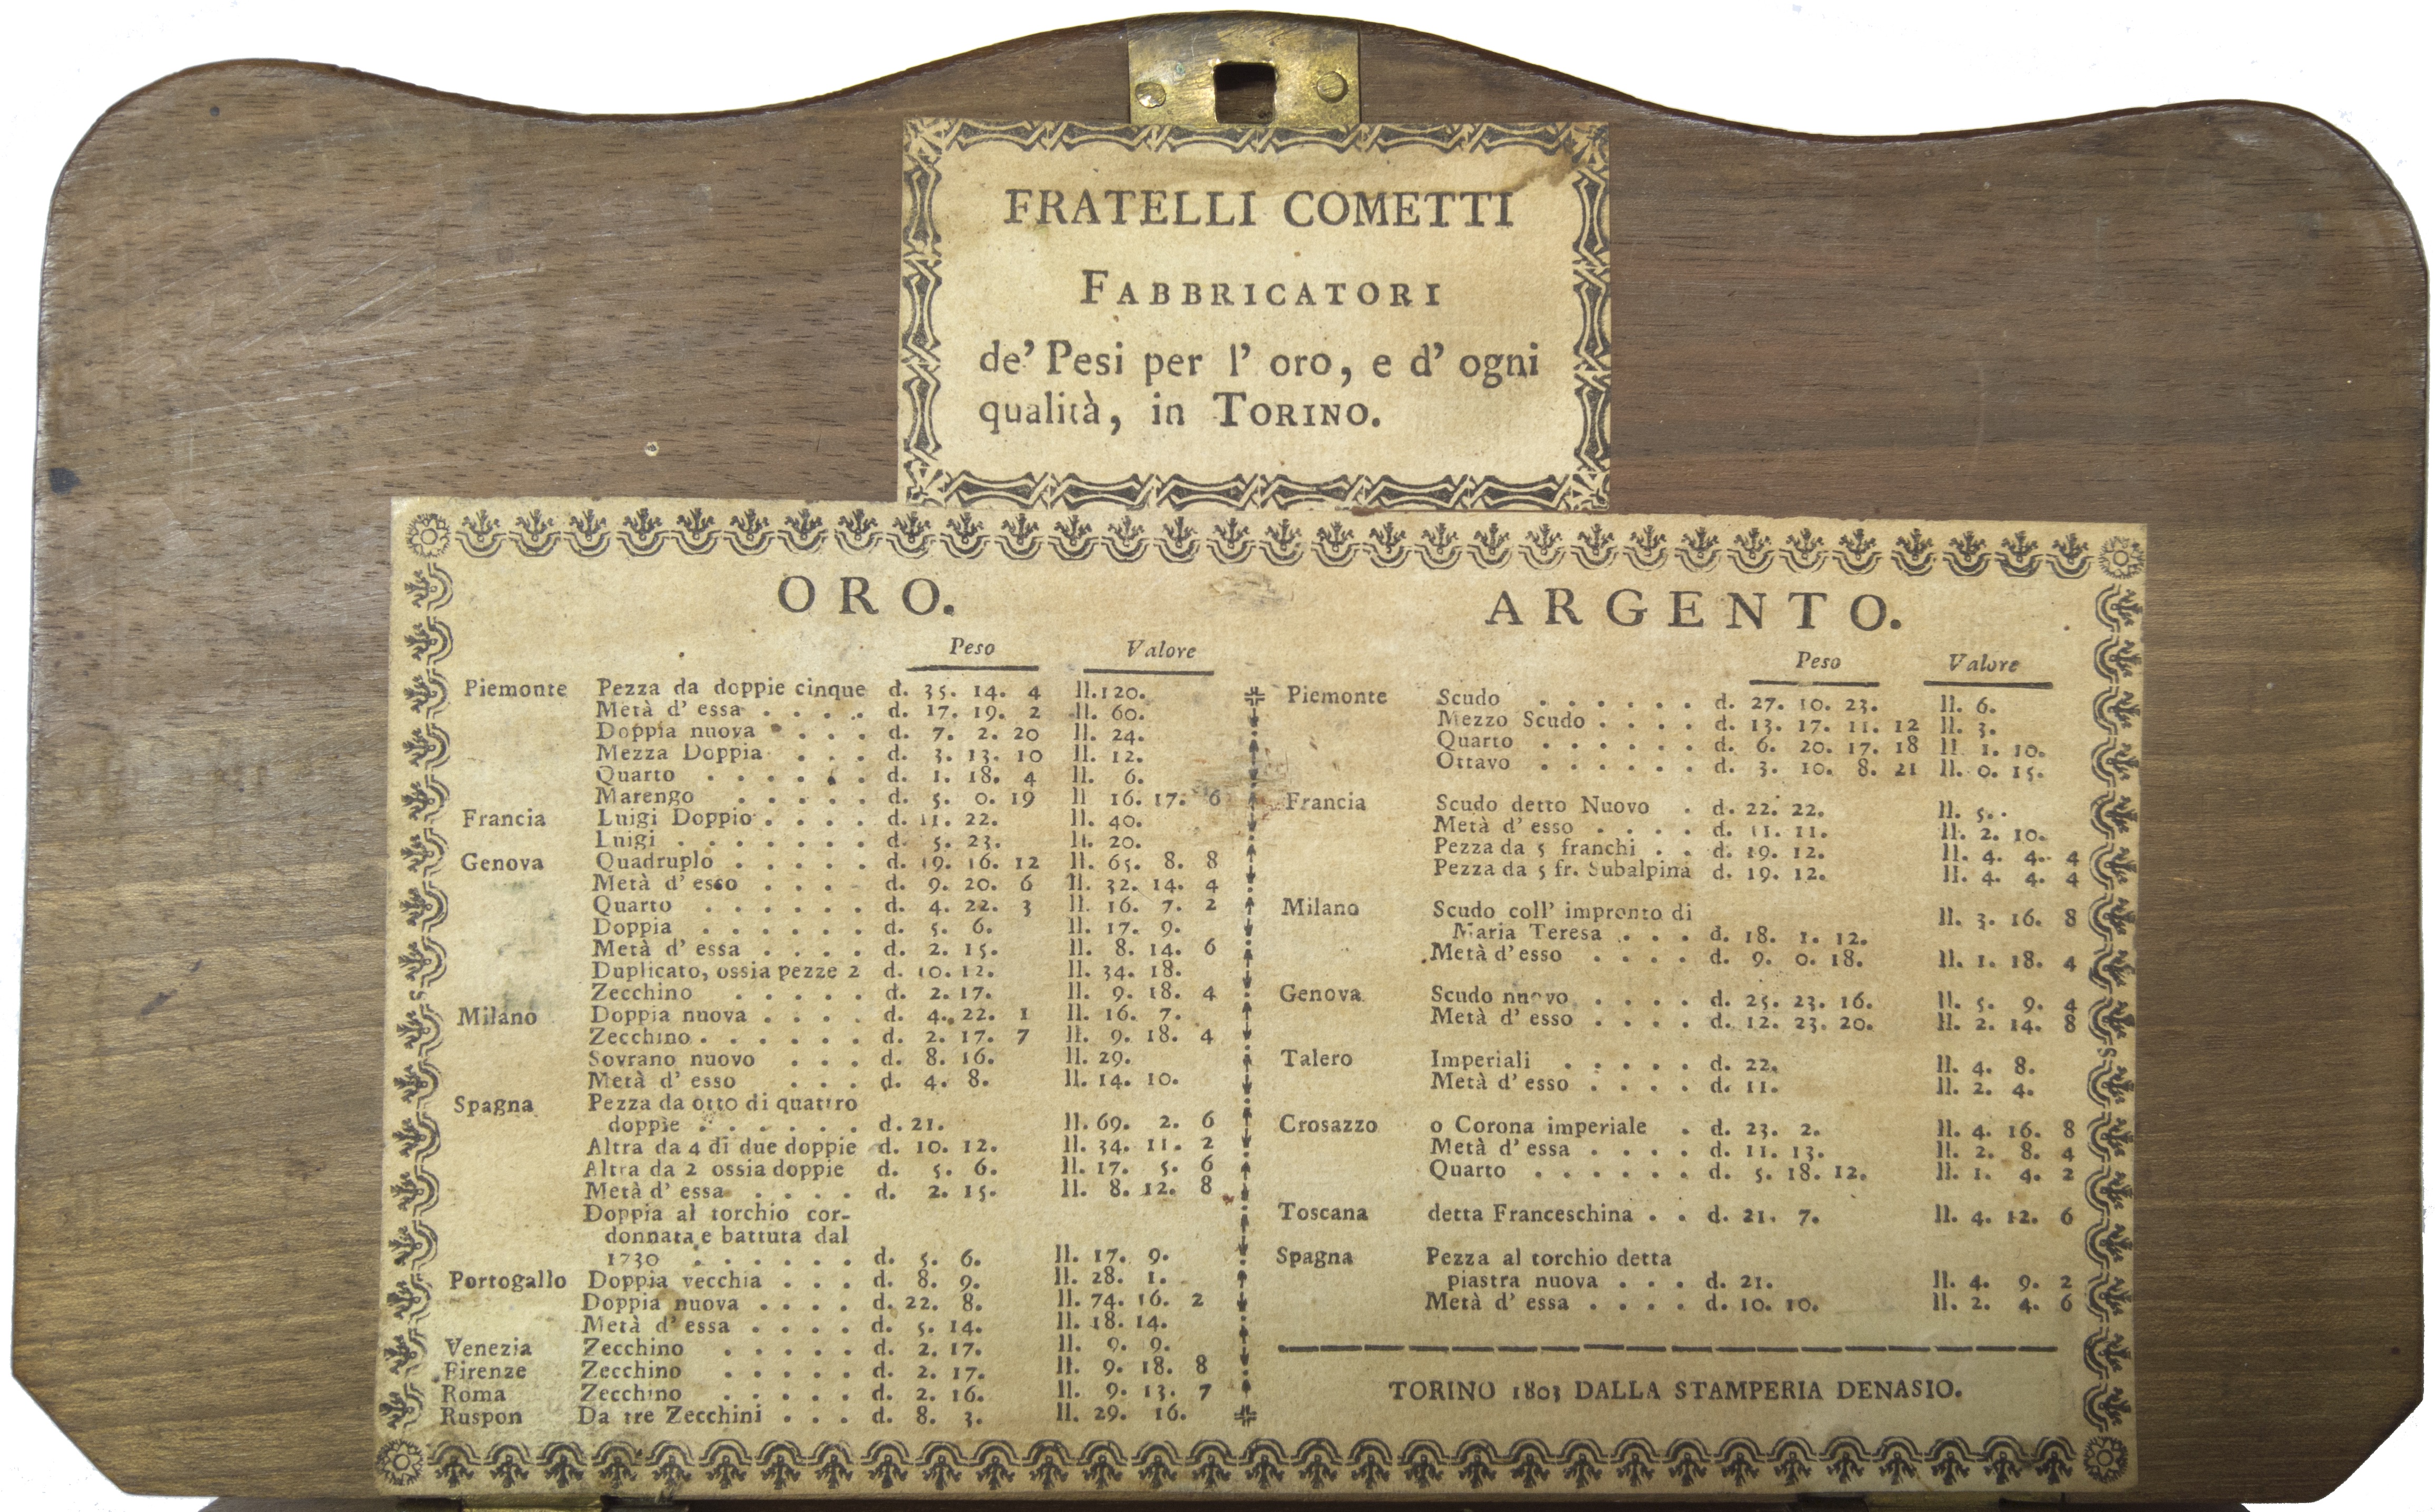 FRATELLI COMETTI
FABBRICATORI
de' Pesi per l' oro, e d' ogni
qualità, in TORINO.
ORO.
Peso Valore
Piemonte Pezza da doppie cinque d. 35. 14. 4 ll. 120.
Metà d' essa . . . . d. 17. 19. 2 ll. 60.
Doppia nuova . . . . d. 7. 2. 20 ll. 24.
Mezza Doppia . . . d. 3. 13. 10 ll. 12.
Quarto . . . . . . d. 1. 18. 4 ll. 6.
Marengo . . . . . d. 5. 0. 19 ll 16. 17. 6
Francia Luigi Doppio . . . . d. 11. 22. ll. 40.
Luigi . . . . . . . d. 5. 23. ll. 20.
Genova Quadruplo . . . . . d. 19. 16. 12 ll. 65. 8. 8
Metà d' esso . . . . d. 9. 20. 6 ll. 32. 14. 4
Quarto . . . . . . d. 4. 22. 3 ll. 16. 7. 2
Doppia . . . . . . d. 5. 6. ll. 17. 9.
Metà d' essa . . . . d. 2. 15. ll. 8. 14. 6
Duplicato, ossia pezze 2 d. 10. 12. ll. 34. 18.
Zecchino . . . . . d. 2. 17. ll. 9. 18. 4
Milano Doppia nuova . . . . d. 4. 22. 1 ll. 16. 7.
Zecchino . . . . . . d. 2. 17. 7 ll. 9. 18. 4
Sovrano nuovo . . . d. 8. 16. ll. 29.
Metà d' esso . . . d. 4. 8. ll. 14. 10.
Spagna Pezza da otto di quattro
doppie . . . . . . d. 21. ll. 69. 2. 6
Altra da 4 di due doppie d. 10. 12. ll. 34. 11. 2
Altra da 2 ossia doppie d. 5. 6. ll. 17. 5. 6
Metà d' essa . . . . d. 2. 15. ll. 8. 12. 8
Doppia al torchio cor-
donnata e battuta dal
1730 . . . . . . d. 5. 6. ll. 17. 9.
Portogallo Doppia vecchia . . . d. 8. 9. ll. 28. 1.
Doppia nuova . . . . d. 22. 8. ll. 74. 16. 2
Metà d' essa . . . . d. 5. 14. ll. 18. 14.
Venezia Zecchino . . . . . d. 2. 17. ll. 9. 9.
Firenze Zecchino . . . . . d. 2. 17. ll. 9. 18. 8
Roma Zecchino . . . . . d. 2. 16. ll. 9. 13. 7
Ruspon Da tre Zecchini . . . d. 8. 3. ll. 29. 16.
ARGENTO.
Peso Valore
Piemonte Scudo . . . . . . d. 27. 10. 23. ll. 6.
Mezzo Scudo . . . . d. 13. 17. 11. 12 ll. 3.
Quarto . . . . . . d. 6. 20. 17. 18 ll. 1. 10.
Ottavo . . . . . . d. 3. 10. 8. 21 ll. 0. 15.
Francia Scudo detto Nuovo . d. 22. 22. ll. 5.
Metà d' esso . . . . d. 11. 11. ll. 2. 10.
Pezza da 5 franchi . . d. 19. 12. ll. 4. 4. 4
Pezza da 5 fr. Subalpina d. 19. 12. ll. 4. 4. 4
Milano Scudo coll' impronto di
Maria Teresa . . . d. 18. 1. 12. ll. 3. 16. 8
Metà d' esso . . . . d. 9. 0. 18. ll. 1. 18. 4
Genova Scudo nuovo . . . . d. 25. 23. 16. ll. 5. 9. 4
Metà d' esso . . . . d. 12. 23. 20. ll. 2. 14. 8
Talero Imperiali . . . . . d. 22. ll. 4. 8.
Metà d' esso . . . . d. 11. ll. 2. 4.
Crosazzo o Corona imperiale . d. 23. 2. ll. 4. 16. 8
Metà d' essa . . . . d. 11. 13. ll. 2. 8. 4
Quarto . . . . . . d. 5. 18. 12. ll. 1. 4. 2
Toscana detta Franceschina . . d. 21. 7. ll. 4. 12. 6
Spagna Pezza al torchio detta
piastra nuova . . . d. 21. ll. 4. 9. 2
Metà d' essa . . . . d. 10. 10. ll. 2. 4. 6
TORINO 1803 DALLA STAMPERIA DENASIO.